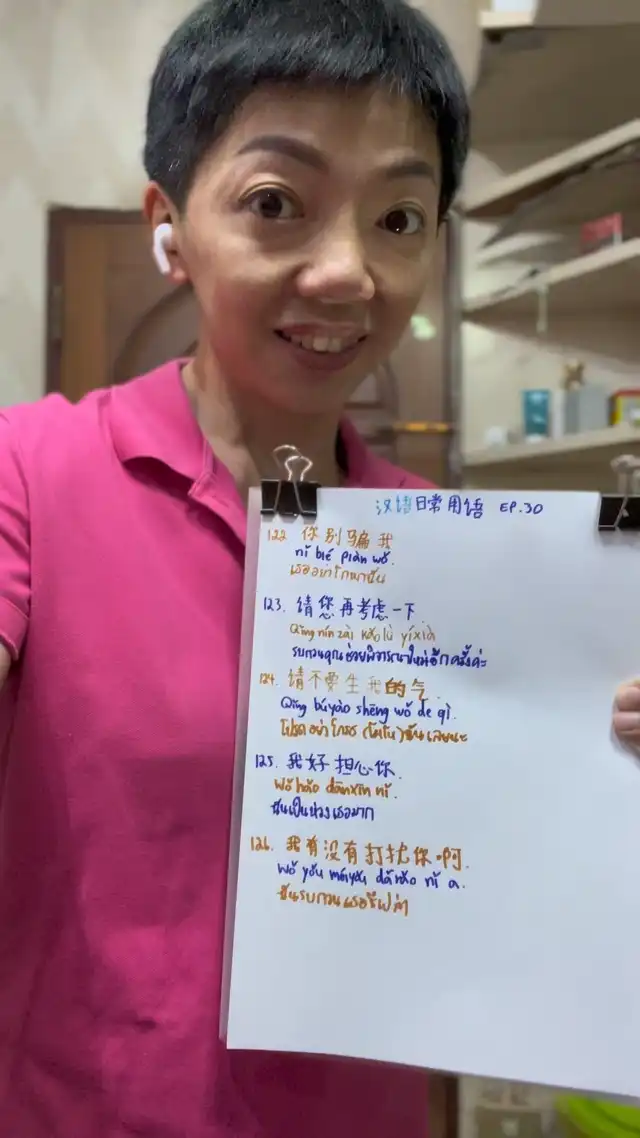 汉语日常用语 EP.30
122. 你别骗我
nǐ bié piàn wǒ.
เธออย่าโกหกฉัน
123. 请您再考虑一下
Qǐng nín zài kǎo lǜ yíxià
รบกวนคุณช่วยพิจารณาใหม่อีกครั้งค่ะ
124. 请不要生我的气.
Qǐng búyào shēng wǒ de qì.
โปรดอย่าโกรธ (โมโห) ฉันเลยนะ
125. 我好担心你.
wǒ hǎo dānxīn nǐ.
ฉันเป็นห่วงเธอมาก
126. 我有没有打扰你啊.
wǒ yǒu méiyǒu dǎrǎo nǐ a.
ฉันรบกวนเธอรึเปล่า